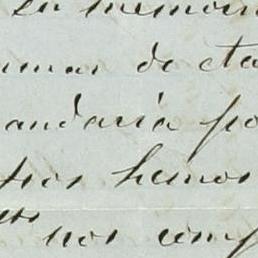 en memori
umar de eta
andaria po
pios hemos
nos comp